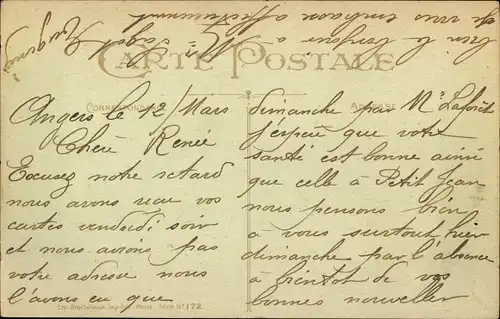 CARTE POSTALE
CORRESPONDANCE
ADRESSE
Angers le 12/Mars
Chère Renée
Excusez notre retard
nous avons recu vos
cartes vendredi soir
et nous avoins pas
votre adresse nous
l'avons eu que
dimanche par Me Laforêt
j'espère que votre
santé est bonne ainsi
que celle à Petit Jean
nous pensons bien
à vous surtout hier
dimanche par l'absence
à bientot de vos
bonnes nouvelles
bien le bonjour à Me Sagot
je vous embrasse affectueusement
Eugénie
Série No 172